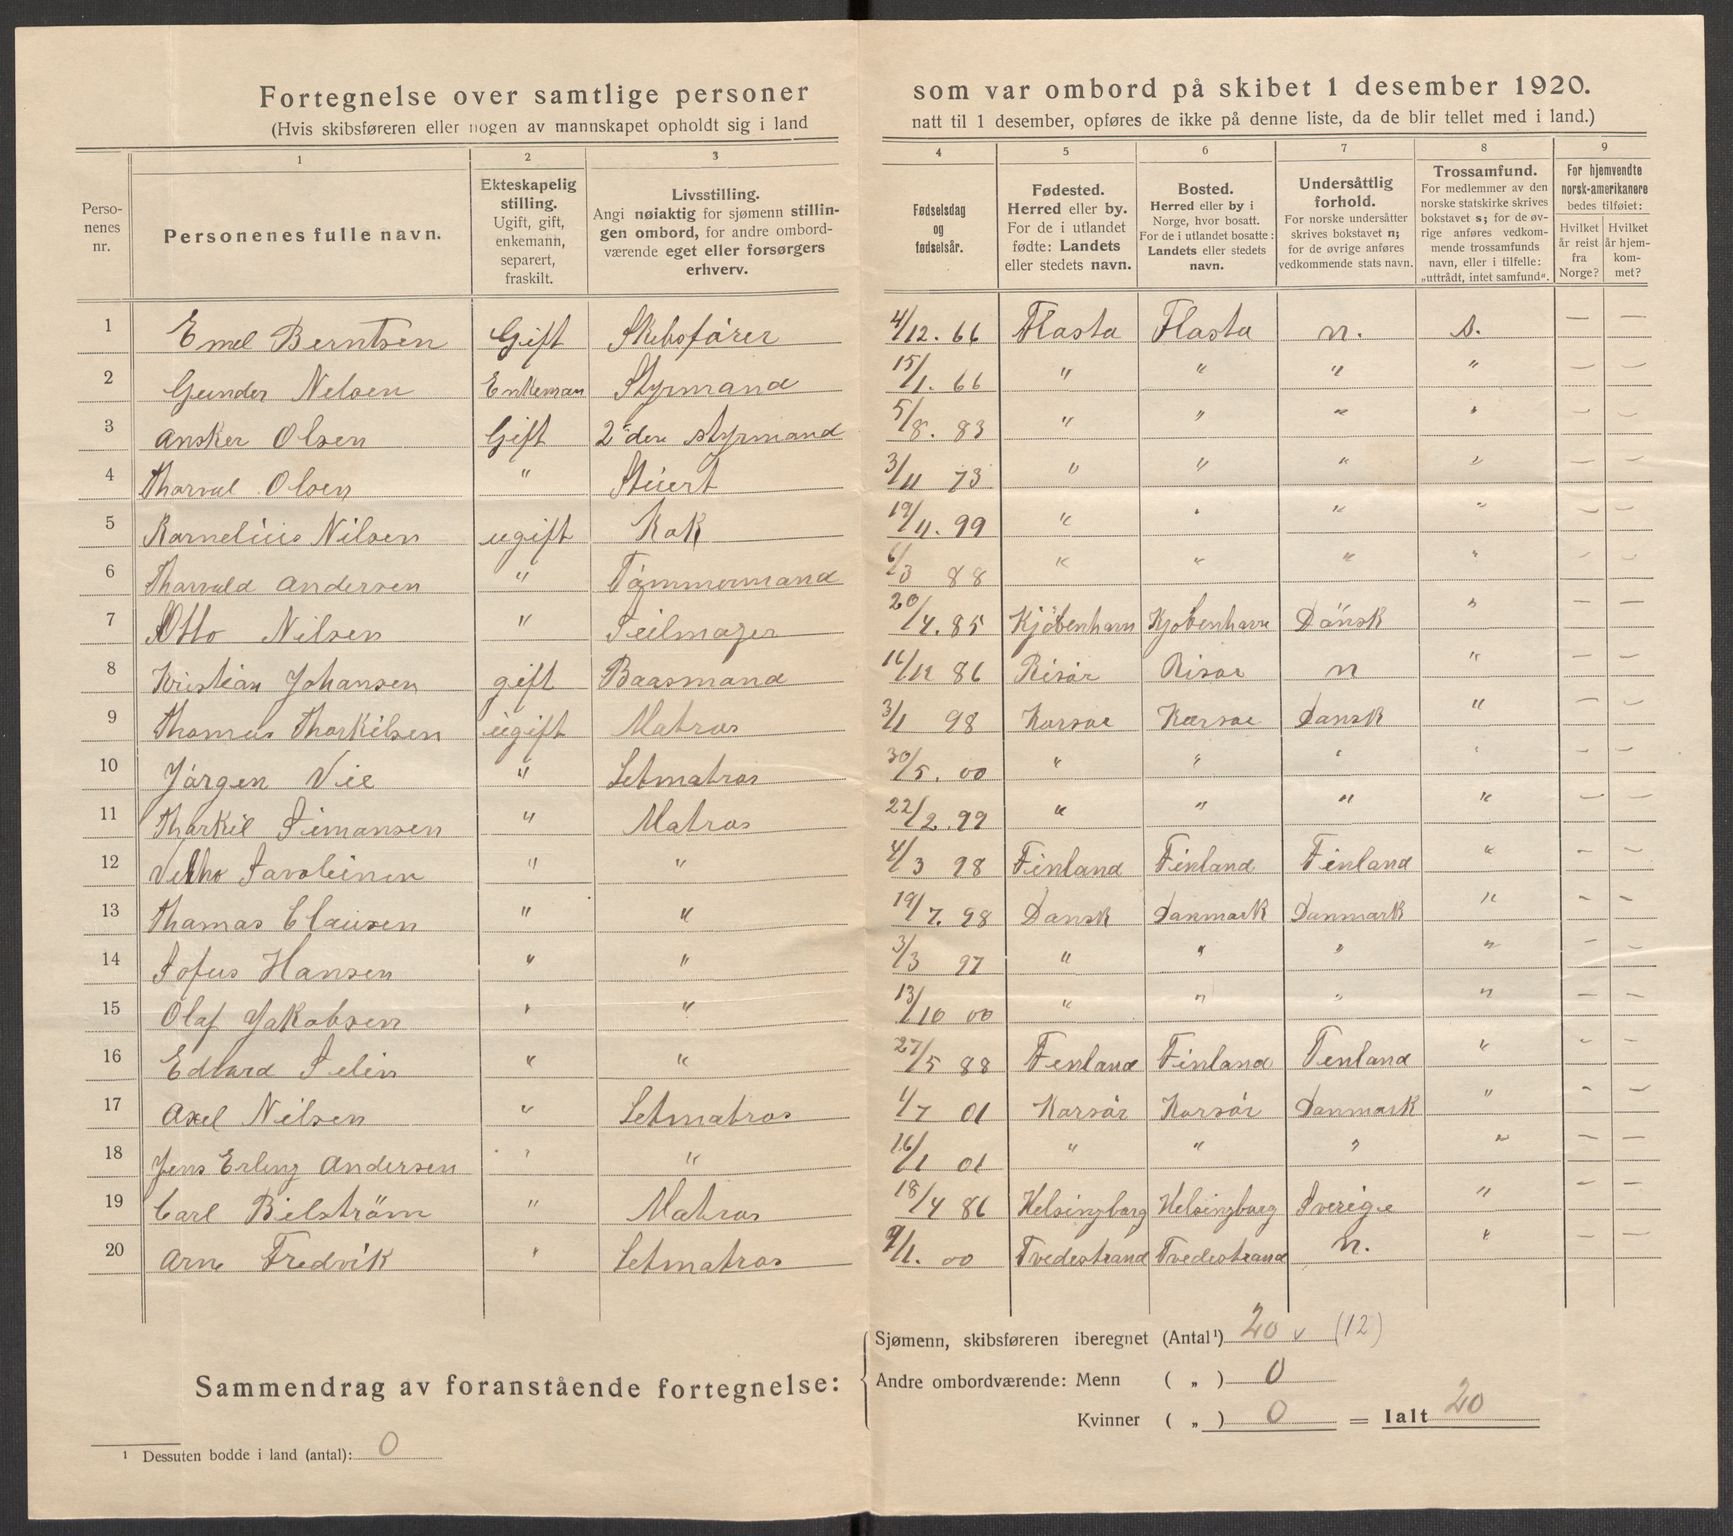 Fortegnelse over samtlige personer som var ombord på skibet 1 desember 1920.
(Hvis skibsføreren eller nogen av mannskapet opholdt sig i land natt til 1 desember, opføres de ikke på denne liste, da de blir tellet med i land.)
Perso-
nenes
nr.
1
Personenes fulle navn.
2
Ekteskapelig
stilling.
Ugift, gift,
enkemann,
separert,
fraskilt.
3
Livsstilling.
Angi nøiaktig for sjømenn stillin-
gen ombord, for andre ombord-
værende eget eller forsørgers
erhverv.
4
Fødselsdag
og
fødselsår.
5
Fødested.
Herred eller by.
For de i utlandet
fødte: Landets
eller stedets navn.
6
Bosted.
Herred eller by i
Norge, hvor bosatt.
For de i utlandet bosatte:
Landets eller stedets
navn.
7
Undersåttlig
forhold.
For norske undersåtter
skrives bokstavet n;
for de øvrige anføres
vedkommende stats navn.
8
Trossamfund.
For medlemmer av den
norske statskirke skrives
bokstavet s; for de øv-
rige anføres vedkom-
mende trossamfunds
navn, eller i tilfelle:
„uttrådt, intet samfund".
9
For hjemvendte
norsk-amerikanere
bedes tilføiet:
Hvilket
år reist
fra
Norge?
Hvilket
år hjem-
kom-
met?
1 Emil Berntsen Gift Skibsfører 4/12. 66 Flasta Flasta n. s. — —
2 Gunder Nelsen Enkeman Styrmand 15/1. 66 " " " " — —
3 Ansker Olsen Gift 2den styrmand 5/8. 83 " " " " — —
4 Thorval Olsen " Stuert 3/11 73 " " " " — —
5 Kornelius Nilsen ugift Kok 19/11. 99 " " " " — —
6 Thorvald Andersen " Tømmermand 6/3 88 " " " " — —
7 Otto Nilsen " Seilmager 20/4. 85 Kjøbenhavn Kjøbenhavn Dansk " — —
8 Kristian Johansen gift Baasmand 16/12 86 Risør Risør n " — —
9 Thomas Thorkilsen ugift Matros 3/1 98 Korsoe Korsoe Dansk " — —
10 Jørgen Vie " Letmatros 30/5. 00 " " " " — —
11 Thorkil Simonsen " Matros 22/2. 99 " " " " — —
12 Savoleinen " " 4/3 98 Finland Finland Finland " — —
13 Thomas Clausen " " 19/7. 98 Dansk Danmark Danmark " — —
14 Sofus Hansen " " 3/3 97 " " " " — —
15 Olaf Jakobsen " " 13/10 00 " " " " — —
16 Edvard Selin " " 27/5 88 Finland Finland Finland " — —
17 Axel Nilsen " Letmatros 1/7 01 Korsør Korsør Danmark " — —
18 Jens Erling Andersen " " 16/1 01 " " " " — —
19 Carl Bilström " Matros 18/4 86 Helsingborg Helsingborg Sverige " — —
20 Arne Fredvik " Letmatros 9/1. 00 Tvedestrand Tvedestrand n. " — —
Sammendrag av foranstående fortegnelse:
Sjømenn, skibsføreren iberegnet (Antal¹) 20 v (12)
Andre ombordværende: Menn ( „ ) 0
Kvinner ( „ ) 0 = Ialt 20
¹ Dessuten bodde i land (antal): 0